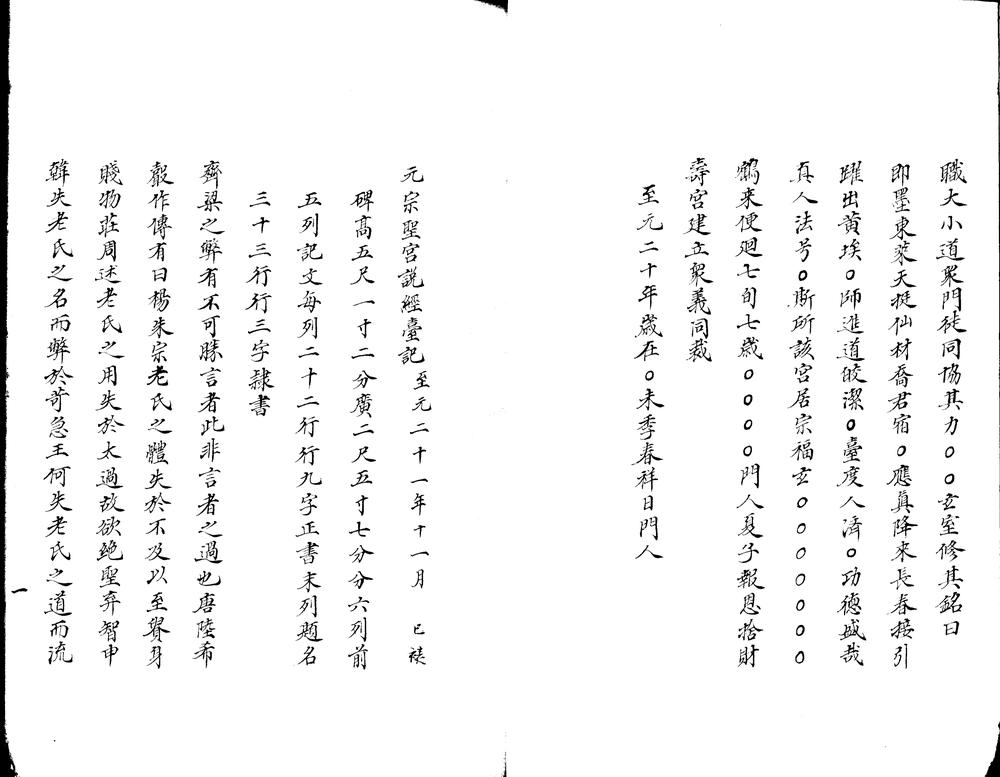 職大小道衆門徒同協其力○○玄室修其銘曰
即墨東萊天挺仙材喬君宿○應真降來長春接引
躍出黄埃○師進道皎潔○臺度人濟○功德盛哉
真人法号○斯所該宮居宗福玄○○○○○○○
鶴来便廻七旬七歲○○○○門人夏子報恩捨財
壽宮建立衆義同裁
至元二十年歲在○未季春祥日門人
元宗聖宮説經臺記至元二十一年十一月 已裱
碑高五尺一寸二分廣二尺五寸七分分六列前
五列記文每列二十二行行九字正書末列題名
三十三行行三字隷書
齊梁之弊有不可勝言者此非言者之過也唐陸希
聲作傳有曰楊朱宗老氏之體失於不及以至貴身
賤物莊周述老氏之用失於太過故欲絶聖弃智申
韓失老氏之名而弊於苛急王何失老氏之道而流
一